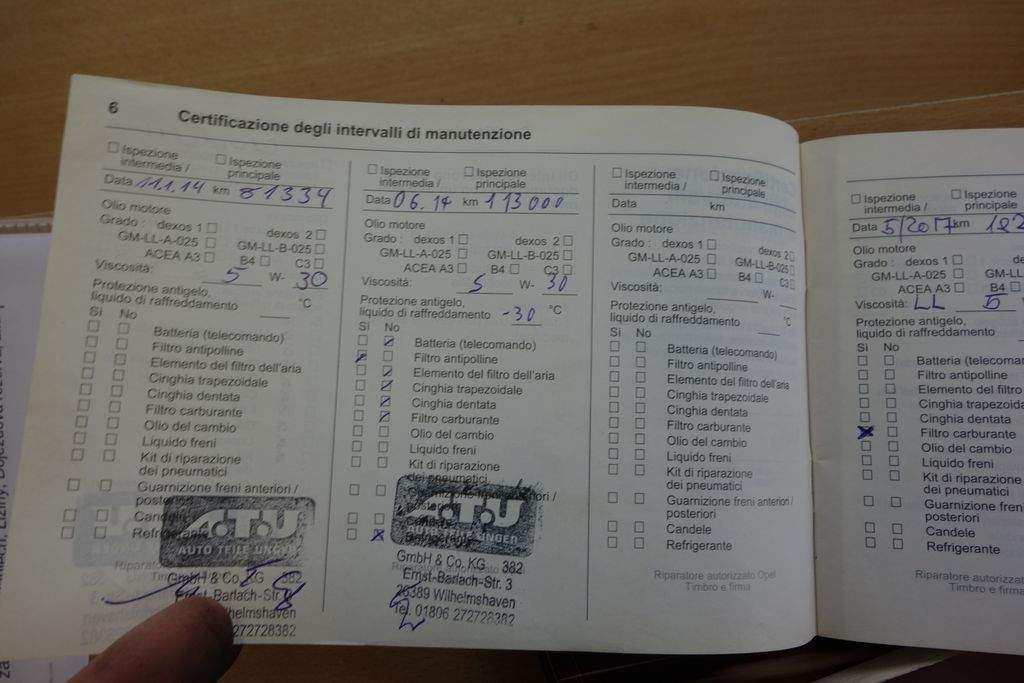 6
Certificazione degli intervalli di manutenzione
Ispezione intermedia /
Ispezione principale
Data 11.1.14 km 81334
Olio motore
Grado : dexos 1 dexos 2
GM-LL-A-025 GM-LL-B-025
ACEA A3 B4 C3
Viscosità: 5 W- 30
Protezione antigelo,
liquido di raffreddamento °C
Si No
Batteria (telecomando)
Filtro antipolline
Elemento del filtro dell'aria
Cinghia trapezoidale
Cinghia dentata
Filtro carburante
Olio del cambio
Liquido freni
Kit di riparazione
dei pneumatici
Guarnizione freni anteriori /
posteriori
Candele
Refrigerante
ATU
AUTO TEILE UNGER
GmbH & Co. KG 382
Ernst-Barlach-Str.
Wilhelmshaven
272728382
Ispezione intermedia /
Ispezione principale
Data 06.14 km 113000
Olio motore
Grado : dexos 1 dexos 2
GM-LL-A-025 GM-LL-B-025
ACEA A3 B4 C3
Viscosità: 5 W- 30
Protezione antigelo,
liquido di raffreddamento -30 °C
Si No
Batteria (telecomando)
Filtro antipolline
Elemento del filtro dell'aria
Cinghia trapezoidale
Cinghia dentata
Filtro carburante
Olio del cambio
Liquido freni
Kit di riparazione
dei pneumatici
Guarnizione freni anteriori /
ATU
AUTO TEILE UNGER
GmbH & Co. KG 382
Ernst-Barlach-Str. 3
26389 Wilhelmshaven
Tel. 01806 272728382
Ispezione intermedia /
Ispezione principale
Data km
Olio motore
Grado : dexos 1 dexos 2
GM-LL-A-025 GM-LL-B-025
ACEA A3 B4 C3
Viscosità: W-
Protezione antigelo,
liquido di raffreddamento °C
Si No
Batteria (telecomando)
Filtro antipolline
Elemento del filtro dell'aria
Cinghia trapezoidale
Cinghia dentata
Filtro carburante
Olio del cambio
Liquido freni
Kit di riparazione
dei pneumatici
Guarnizione freni anteriori /
posteriori
Candele
Refrigerante
Riparatore autorizzato Opel
Timbro e firma
Ispezione intermedia /
Ispezione principale
Data 5/2017 km
Olio motore
Grado : dexos 1
GM-LL-A-025
ACEA A3 B4
Viscosità: LL 5
Protezione antigelo,
liquido di raffreddamento
Si No
Batteria
Filtro antipolline
Elemento del filtro
Cinghia
Cinghia dentata
Filtro carburante
Olio del cambio
Liquido freni
Kit di riparazione
dei pneumatici
Guarnizione freni
posteriori
Candele
Refrigerante
Riparatore
Timbro e firma